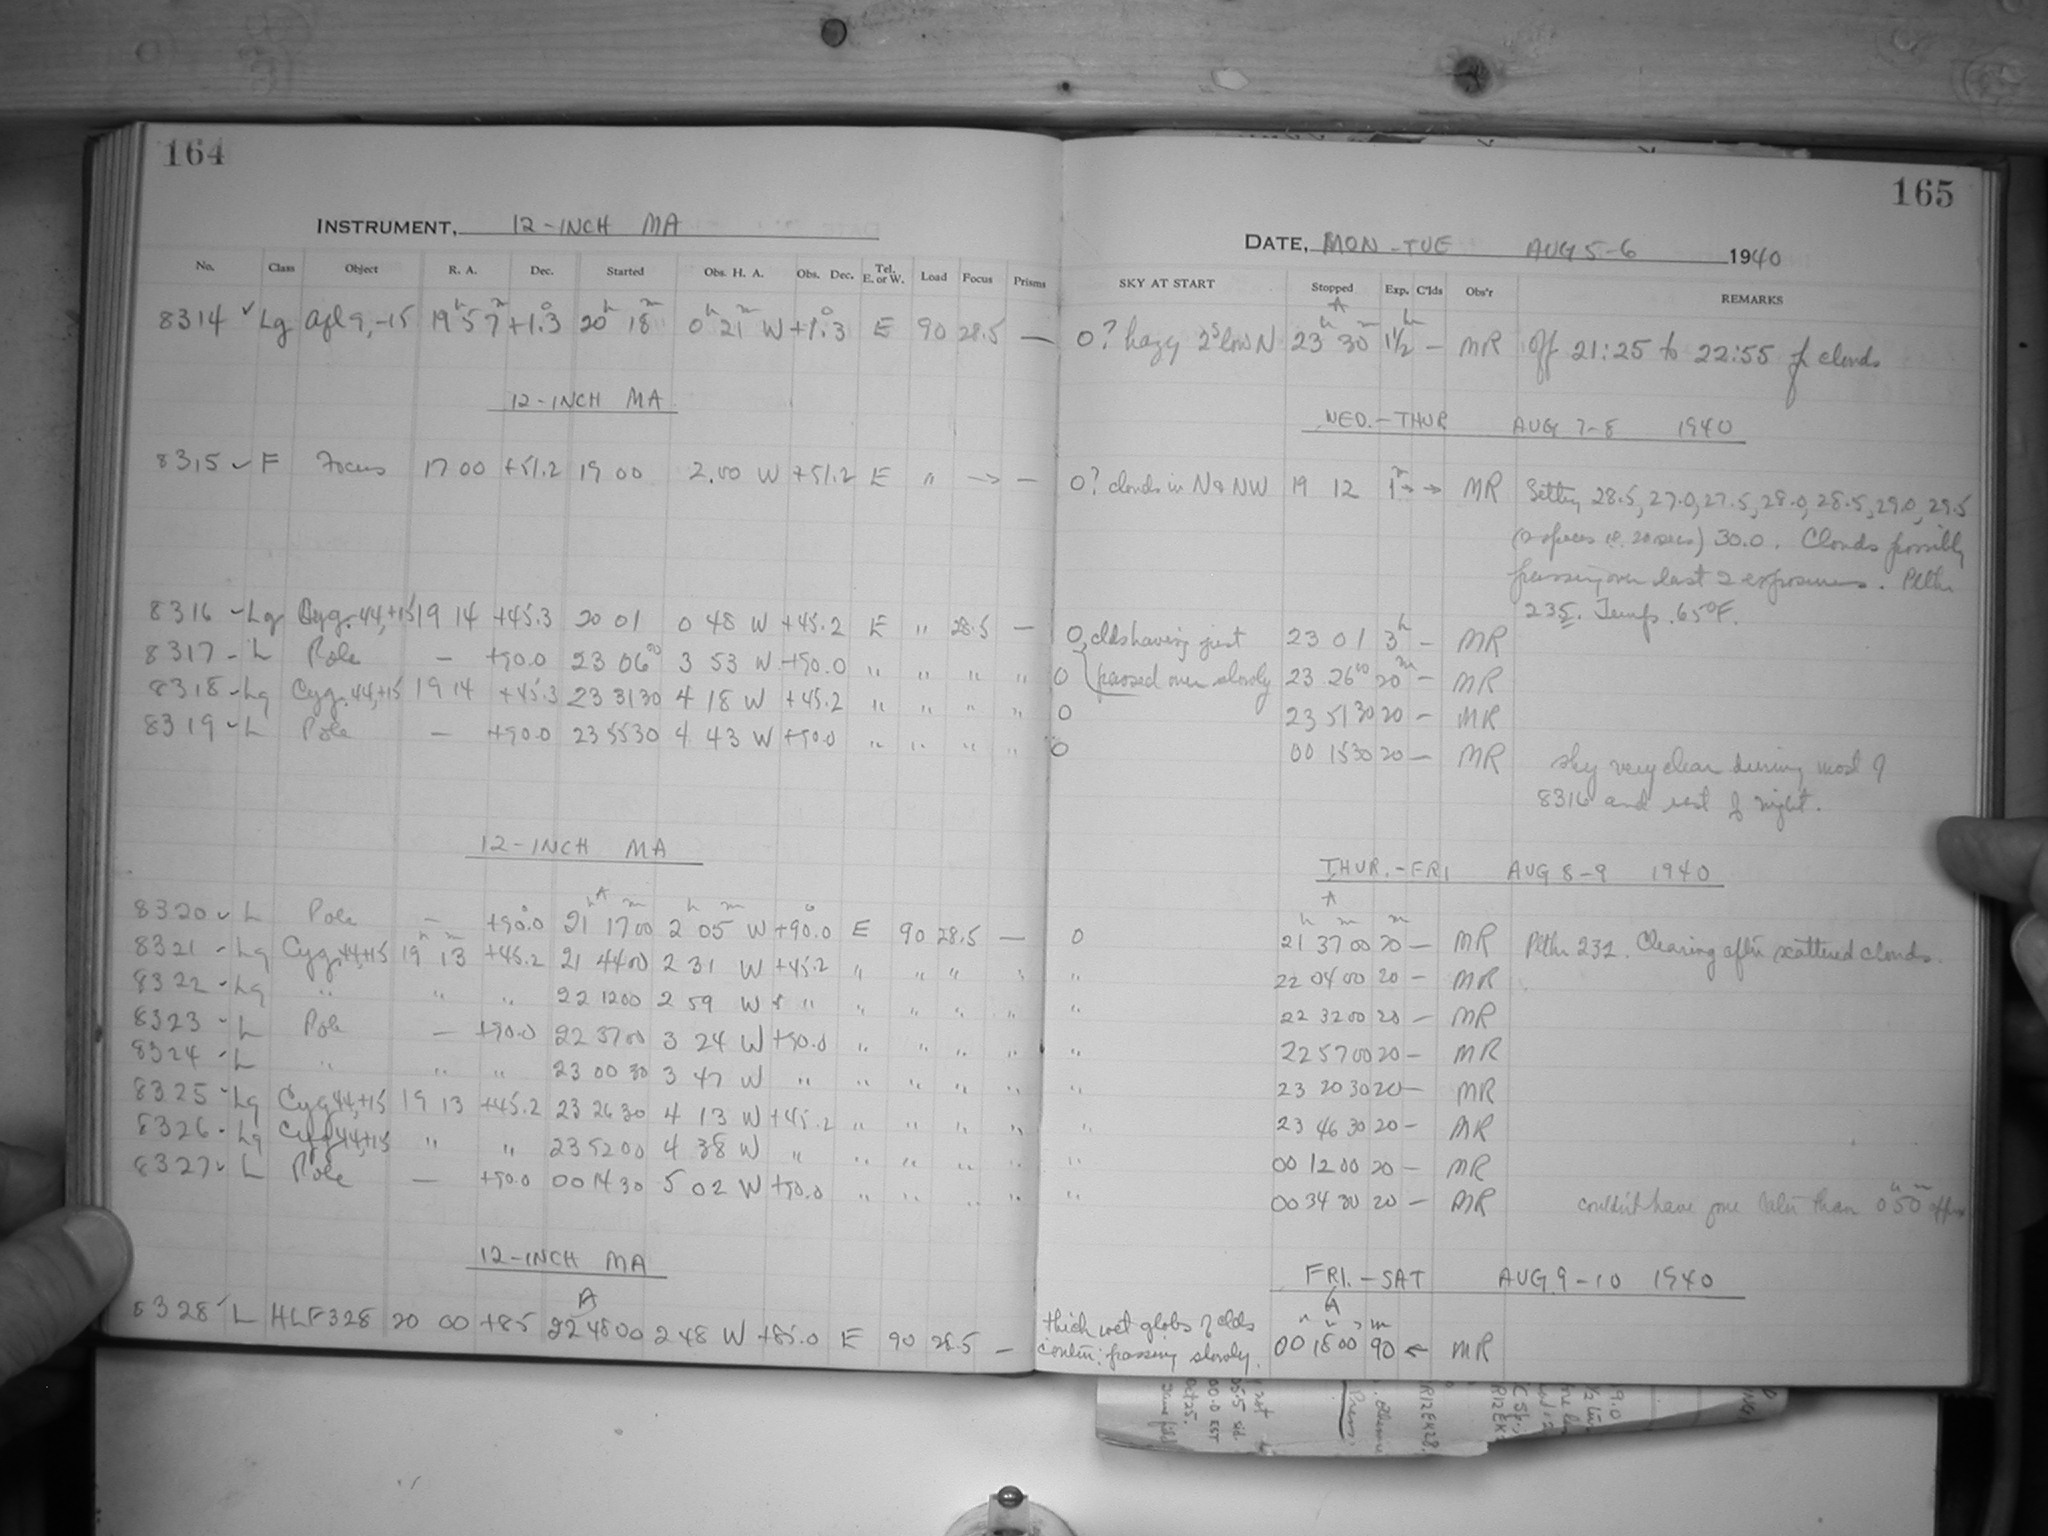 164
INSTRUMENT, 12-INCH MA
No. Class Object R. A. Dec. Started Obs. H. A. Obs. Dec. Tel. E. or W. Load Focus Prisms
8314 ✓ Lg Aql 9,-15 19h 57m +1.°3 20h 18m 0h 21m W +1.°3 E 90 28.5 —
12-INCH MA
8315 ✓ F Focus 17 00 +51.2 19 00 2.00 W +51.2 E " → —
8316 ✓ Lg Cyg. 44,+15 19 14 +45.3 20 01 0 48 W +45.2 E " 28.5 —
8317 - L Pole — +90.0 23 06 00 3 53 W +90.0 " " " "
8318 - Lg Cyg. 44,+15 19 14 +45.3 23 31 30 4 18 W +45.2 " " " "
8319 ✓ L Pole — +90.0 23 55 30 4 43 W +90.0 " " " "
12-INCH MA
8320 ✓ L Pole — +90.°0 A 21h 17m 00 2h 05m W +90.°0 E 90 28.5 —
8321 - Lg Cyg 44,+15 19h 13m +45.2 21 44 00 2 31 W +45.2 " " " "
8322 - Lg " " " 22 12 00 2 59 W " " " " "
8323 - L Pole — +90.0 22 37 00 3 24 W +90.0 " " " "
8324 - L " " " 23 00 30 3 47 W " " " " "
8325 - Lg Cyg 44,+15 19 13 +45.2 23 26 30 4 13 W +45.2 " " " "
8326 - Lg Cyg 44,+15 " " 23 52 00 4 38 W " " " " "
8327 ✓ L Pole — +90.0 00 14 30 5 02 W +90.0 " " " "
12-INCH MA
8328 ✓ L HLF328 20 00 +85 A 22 48 00 2 48 W +85.0 E 90 28.5 —
165
DATE, MON-TUE AUG 5-6 1940
SKY AT START Stopped Exp. C'lds Obs'r REMARKS
0? hazy 2S low N A 23h 30m 1½h — MR Off 21:25 to 22:55 for clouds
WED.-THUR AUG 7-8 1940
0? clouds in N & NW 19 12 1m → → MR Setting 28.5, 27.0, 27.5, 28.0, 28.5, 29.0, 29.5
(2 spaces i.e. 20 secs) 30.0. Clouds possibly
passing over last 2 exposures.
235. Temp. 65°F.
0, clds having just 23 01 3h — MR
0 passed over slowly 23 26 00 20m — MR
0 23 51 30 20 — MR
0 00 15 30 20 — MR sky very clear during most of
8316 and rest of night.
THUR.-FRI AUG 8-9 1940
0 A 21h 37m 00 20m — MR 232. Clearing after scattered clouds.
" 22 04 00 20 — MR
" 22 32 00 20 — MR
" 22 57 00 20 — MR
" 23 20 30 20 — MR
" 23 46 30 20 — MR
" 00 12 00 20 — MR
" 00 34 30 20 — MR couldn't have gone later than 0h 50m
FRI.-SAT AUG 9-10 1940
thick wet globs of clds A
contin: passing slowly. 00 18 00 90m ← MR